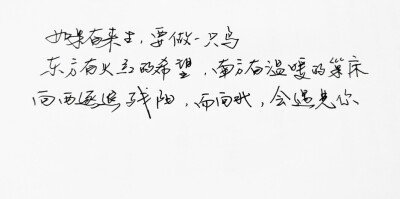 如果有来生,要做一只鸟
东方有火红的希望,南方有温暖的巢床
向西逐退残阳,而向,会遇见你